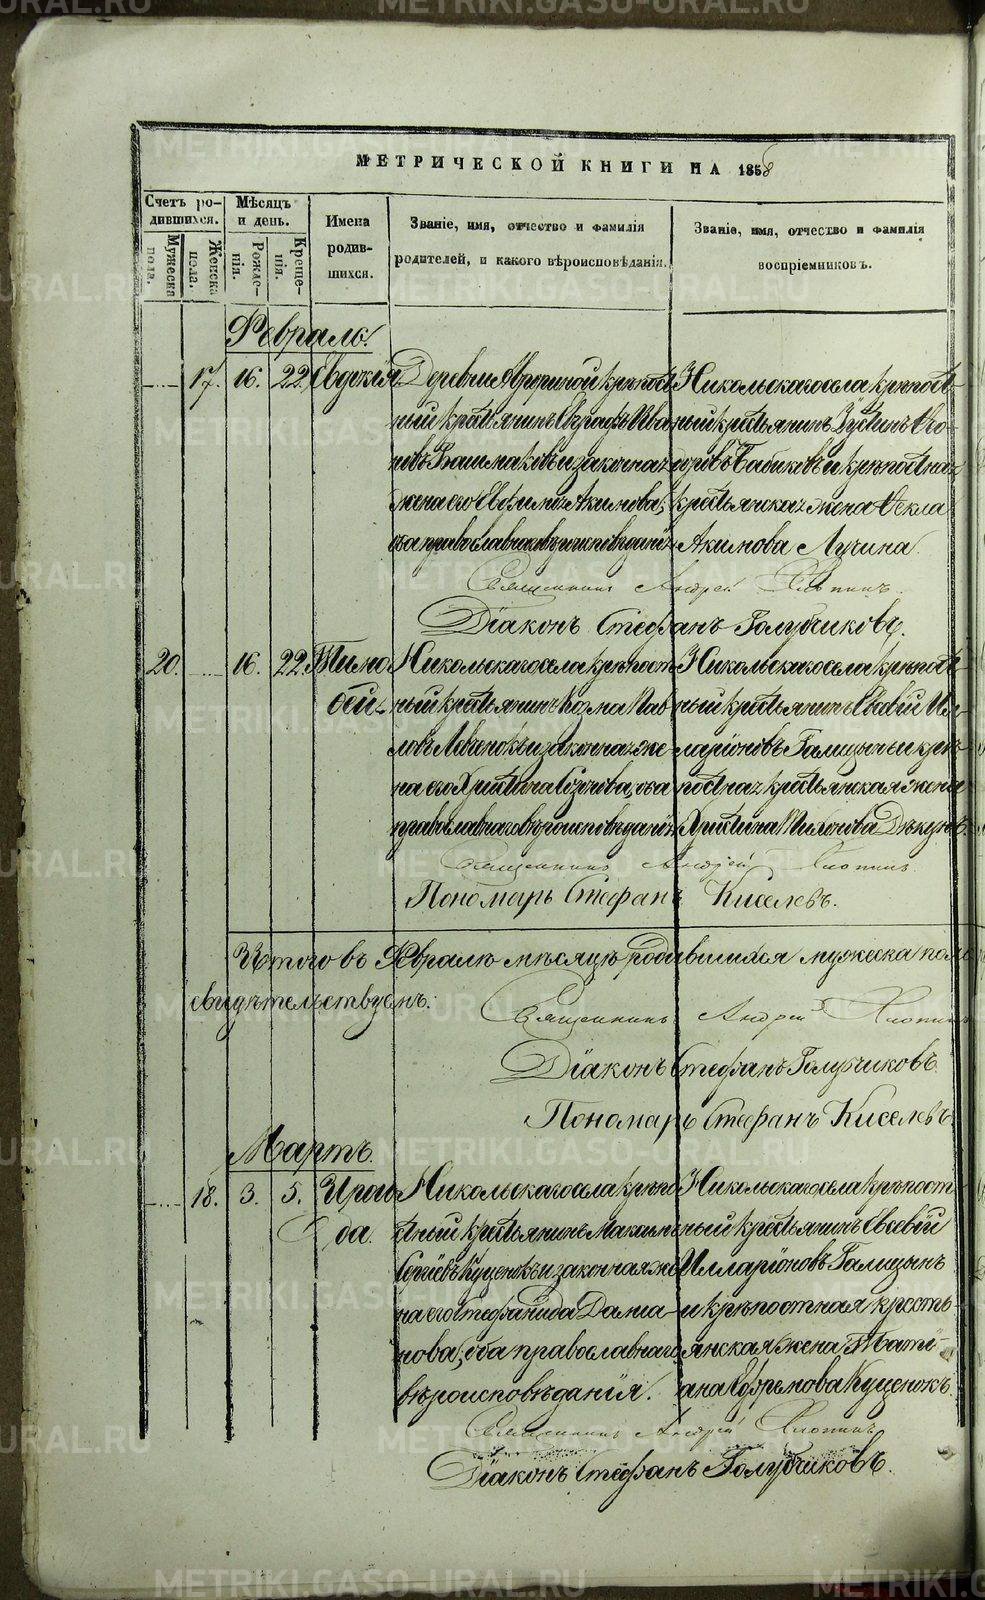 МЕТРИЧЕСКОЙ КНИГИ НА 1858
Счетъ ро-
дившихся.
Мужеска
пола.
Женска
пола.
Мѣсяцъ
и день.
Рожде-
нія.
Креще-
нія.
Имена
родив-
шихся.
Званіе, имя, отчество и фамилія
родителей, и какого вѣроисповѣданія.
Званіе, имя, отчество и фамилія
воспріемниковъ.
Февраль.
17. 16. 22. Евдокія
Деревни крѣпост-
ный крестьянинъ Евграфъ Ива-
новъ Башмаковъ и законная
жена его Евфимія Акимова,
оба православнаго вѣроисповѣданія
Никольскаго села крѣпост-
ный крестьянинъ Іустинъ Ѳео-
доровъ Бабиковъ и крѣпостная
крестьянская жена Ѳекла
Акимова Лучина.
Священникъ Андрей Хлопинъ.
Діаконъ Стефанъ Голубчиковъ.
20. 16. 22. Тимо-
ѳей
Никольскаго села крѣпост-
ный крестьянинъ Козма Пав-
ловъ и законная же-
на его Христина оба
православнаго вѣроисповѣданія
Никольскаго села крѣпост-
ный крестьянинъ Евсевій Ил-
ларіоновъ Галицынъ и крѣ-
постная крестьянская жена
Христина
Священникъ Андрей Хлопинъ
Пономарь Стефанъ Киселевъ.
Итого въ Февралѣ мѣсяцѣ родившихся мужеска пола
свидѣтельствуемъ:
Священникъ Андрей Хлопинъ
Діаконъ Стефанъ Голубчиковъ.
Пономарь Стефанъ Киселевъ
Мартъ.
18. 3. 5. Ираи-
да.
Никольскаго села крѣпо-
стный крестьянинъ Максимъ
Сергѣевъ Куценокъ и законная же-
на его Стефанида Даниа-
нова, оба православнаго
вѣроисповѣданія.
Никольскаго села крѣпост-
ный крестьянинъ Евсевій
Илларіоновъ Галицынъ
и крѣпостная кресть-
янская жена Таті-
ана Ефремова Куценокъ.
Священникъ Андрей Хлопинъ
Діаконъ Стефанъ Голубчиковъ.
METRIKI.GASO-URAL.RU